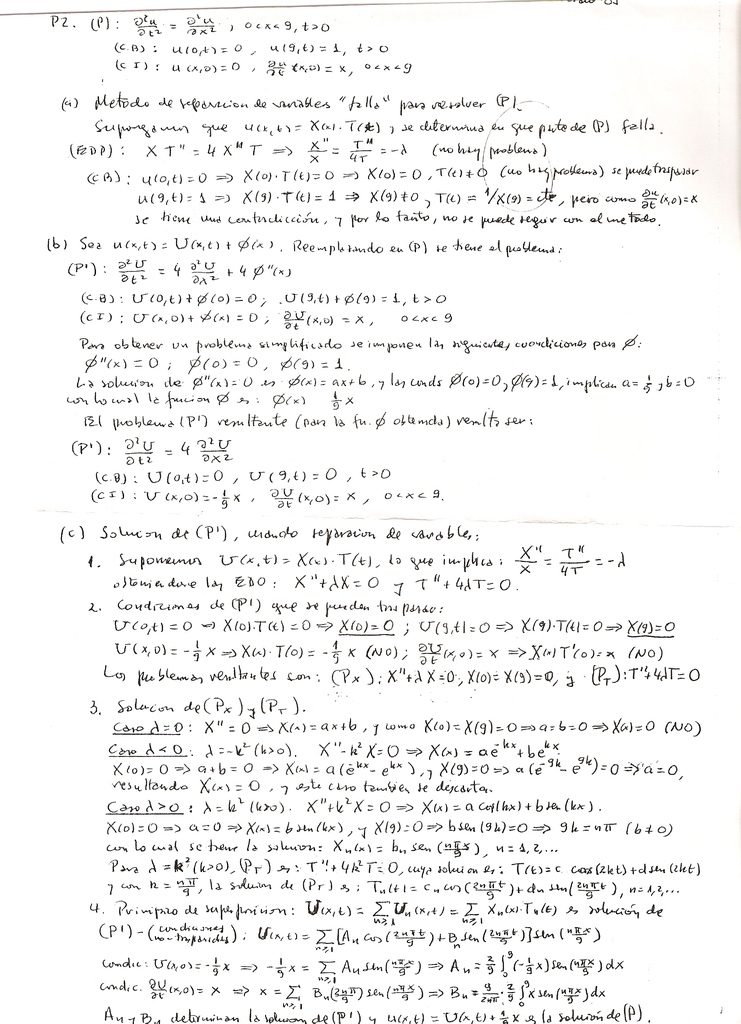 P2. (P): ∂²u/∂t² = ∂²u/∂x² , 0<x<9, t>0
(C.B): u(0,t) = 0 , u(9,t) = 1, t>0
(C I): u(x,0) = 0 , ∂u/∂t (x,0) = x, 0<x<9
(a) Metodo de separacion de variables "falla" para resolver (P).
Supongamos que u(x,t) = X(x)·T(t), se determina en que parte de (P) falla.
(EDP): X T'' = 4 X'' T ⇒ X''/X = T''/4T = -λ (no hay problema)
(C B): u(0,t) = 0 ⇒ X(0)·T(t) = 0 ⇒ X(0) = 0, T(t) ≠ 0 (no hay problema) se puede traspasar
u(9,t) = 1 ⇒ X(9)·T(t) = 1 ⇒ X(9) ≠ 0, T(t) = 1/X(9) = cte, pero como ∂u/∂t (x,0) = x
se tiene una contradicción, y por lo tanto, no se puede seguir con el metodo.
(b) Sea u(x,t) = U(x,t) + Ø(x). Reemplazando en (P) se tiene el problema:
(P'): ∂²U/∂t² = 4 ∂²U/∂x² + 4 Ø''(x)
(C.B): U(0,t) + Ø(0) = 0 ; U(9,t) + Ø(9) = 1, t>0
(C I): U(x,0) + Ø(x) = 0 ; ∂U/∂t (x,0) = x, 0<x<9
Para obtener un problema simplificado se imponen las siguientes condiciones para Ø:
Ø''(x) = 0 ; Ø(0) = 0, Ø(9) = 1.
La solucion de Ø''(x) = 0 es Ø(x) = ax+b, y las conds Ø(0)=0, Ø(9)=1, implican a = 1/9, b = 0
con lo cual la funcion Ø es: Ø(x) 1/9 x
El problema (P') resultante (para la fn. Ø obtenida) resulta ser:
(P'): ∂²U/∂t² = 4 ∂²U/∂x²
(C.B): U(0,t) = 0 , U(9,t) = 0 , t>0
(C I): U(x,0) = -1/9 x , ∂U/∂t (x,0) = x , 0<x<9.
(c) Solucion de (P'), usando separacion de variables:
1. Suponemos U(x,t) = X(x)·T(t), lo que implica: X''/X = T''/4T = -λ
obteniendose las EDO: X''+λX = 0 y T''+4λT = 0.
2. Condiciones de (P') que se pueden traspasar:
U(0,t) = 0 ⇒ X(0)·T(t) = 0 ⇒ X(0) = 0 ; U(9,t) = 0 ⇒ X(9)·T(t) = 0 ⇒ X(9) = 0
U(x,0) = -1/9 x ⇒ X(x)·T(0) = -1/9 x (NO) ; ∂U/∂t (x,0) = x ⇒ X(x) T'(0) = x (NO)
Los problemas resultantes son: (Px): X''+λX = 0, X(0) = X(9) = 0, y (PT): T''+4λT = 0
3. Solucion de (Px) y (PT).
Caso λ=0: X'' = 0 ⇒ X(x) = ax+b, y como X(0) = X(9) = 0 ⇒ a=b=0 ⇒ X(x) = 0 (NO)
Caso λ<0: λ = -k² (k>0). X''-k²X = 0 ⇒ X(x) = ae^-kx + be^kx
X(0) = 0 ⇒ a+b = 0 ⇒ X(x) = a(e^-kx - e^kx), y X(9) = 0 ⇒ a(e^-9k - e^9k) = 0 ⇒ a = 0,
resultando X(x) = 0, y este caso tambien se descarta.
Caso λ>0: λ = k² (k>0). X''+k²X = 0 ⇒ X(x) = a cos(kx) + b sen(kx).
X(0) = 0 ⇒ a = 0 ⇒ X(x) = b sen(kx), y X(9) = 0 ⇒ b sen(9k) = 0 ⇒ 9k = nπ (b≠0)
con lo cual se tiene la solucion: Xn(x) = bn sen(nπx/9), n = 1,2,...
Para λ = k² (k>0), (PT) es: T''+4k²T = 0, cuya solucion es: T(t) = c cos(2kt) + d sen(2kt)
y con k = nπ/9, la solucion de (PT) es: Tn(t) = cn cos(2nπt/9) + dn sen(2nπt/9), n = 1,2,...
4. Principio de superposicion: U(x,t) = Σn≥1 Un(x,t) = Σn≥1 Xn(x)·Tn(t) es solución de
(P')-(condiciones no-traspasadas): U(x,t) = Σn≥1 [An cos(2nπt/9) + Bn sen(2nπt/9)] sen(nπx/9)
condic: U(x,0) = -1/9 x ⇒ -1/9 x = Σn≥1 An sen(nπx/9) ⇒ An = 2/9 ∫₀⁹ (-1/9 x) sen(nπx/9) dx
condic. ∂U/∂t (x,0) = x ⇒ x = Σn≥1 Bn(2nπ/9) sen(nπx/9) ⇒ Bn = 9/2nπ · 2/9 ∫₀⁹ x sen(nπx/9) dx
An y Bn determinan la solucion de (P') y u(x,t) = U(x,t) + 1/9 x es la solución de (P).